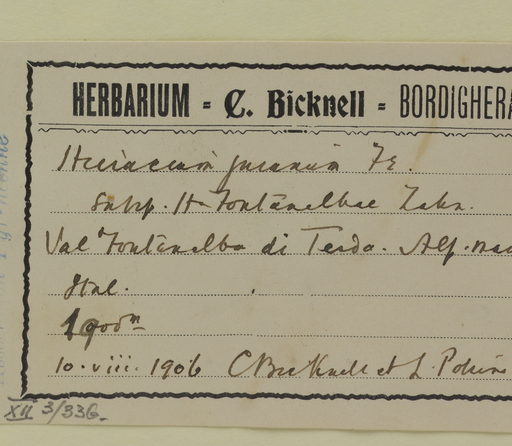 HERBARIUM - C. Bicknell - BORDIGHERA
Hieracium juranum Fr.
subsp. H. Fontanalbae Zahn.
Val Fontanalba di Tenda. Alp. mar
Ital.
1900 m
10. viii. 1906 C Bicknell et L. Pollini
XII 3/336.